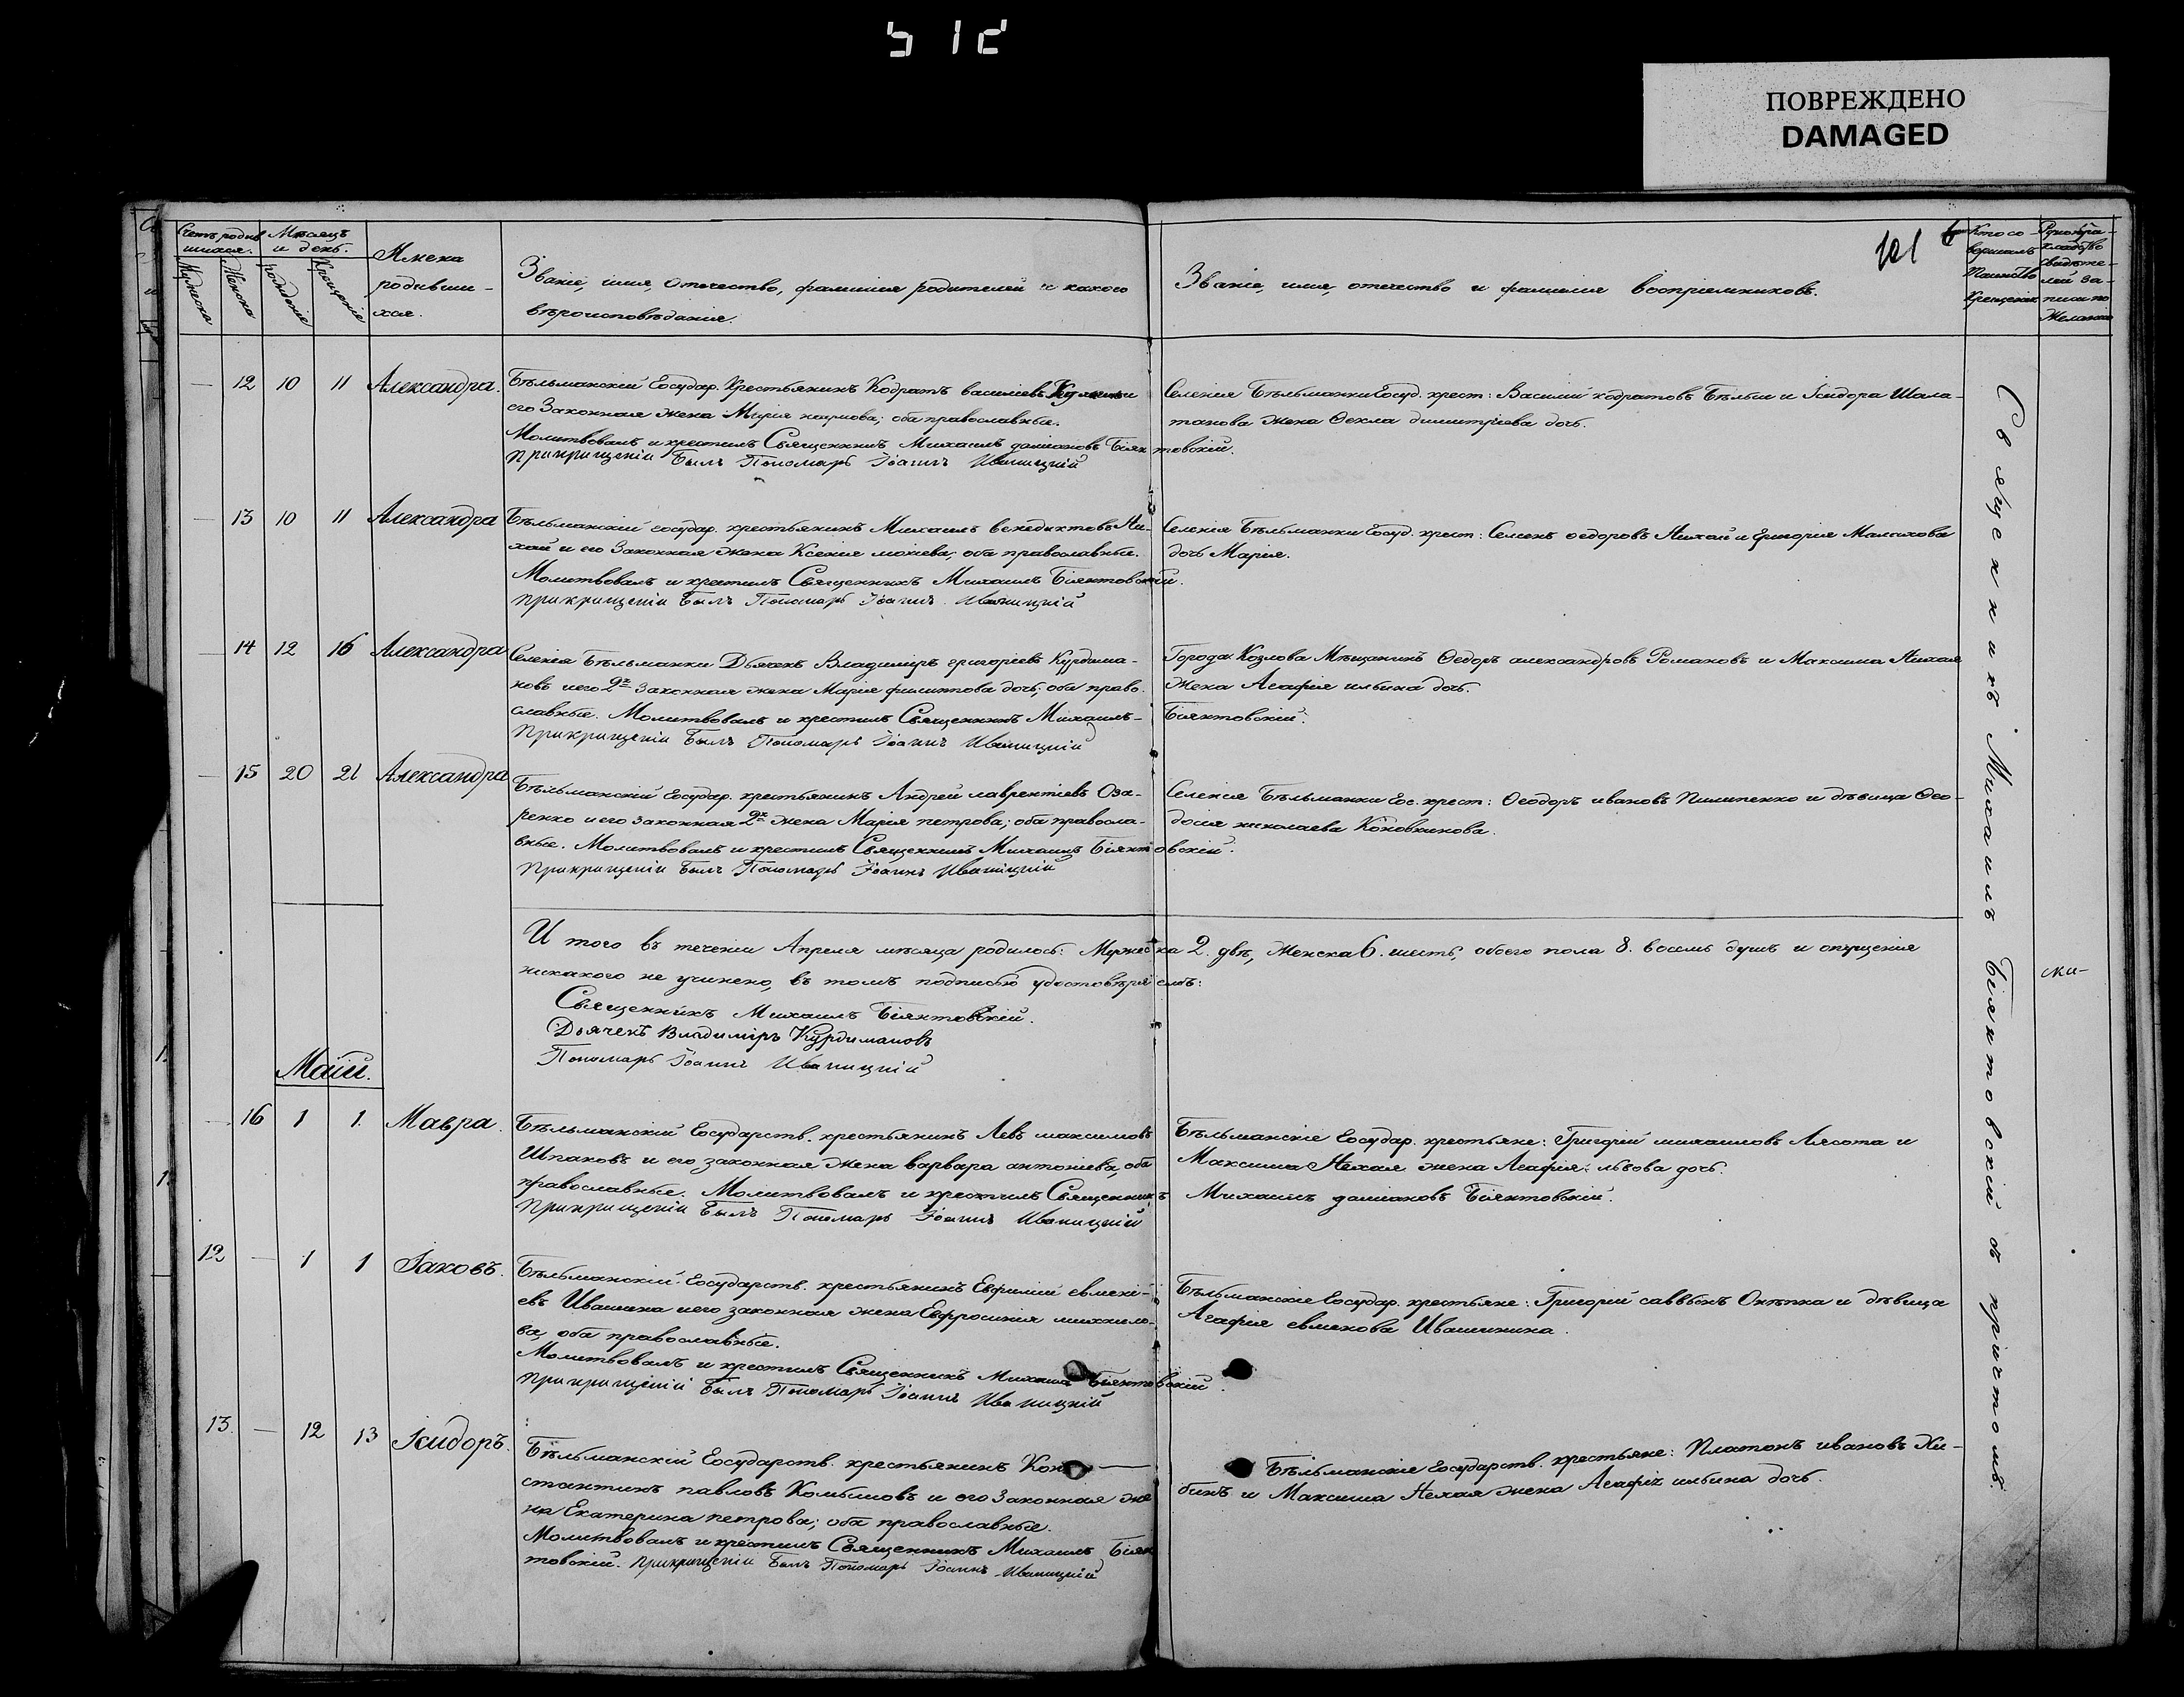 512
ПОВРЕЖДЕНО
DAMAGED
101
Счетъ родив
шихся.
Мѣсяцъ
и день.
Мужеска
Женска
рожденіе
Крещеніе
Имена
родивши-
хся.
Званіе, имя, Отечество, фамилія родителей и какого
вѣроисповѣданія.
Званіе, имя, отечество и фамилія воспріемниковъ.
Кто со-
вершалъ
Таинство
Крещенія
Рукопри-
кладство
свидѣте-
лей за-
писи по
желанію
— 12 10 11 Александра.
Бѣльманскій Государ. Крестьянинъ Кодратъ василіевъ
его Законная жена Марія наумова; оба православные.
Молитвовалъ и крестилъ Священникъ Михаилъ даміановъ Біянтовскій.
При крищеніи былъ Пономарь Іоаннъ Иваницкій
Селенія Бѣльманки Госуд. крест: Василій кодратовъ Бѣлый и Ісидора Шала-
танова жена Ѳекла димитріева дочь.
— 13 10 11 Александра
Бѣльманскій государ. крестьянинъ Михаилъ венедиктовъ Ни-
хай и его Законная жена Ксенія моисеева, оба православные.
Молитвовалъ и крестилъ Священникъ Михаилъ Біянтовскій.
При крищеніи былъ Пономарь Іоаннъ Иваницкій
Селенія Бѣльманки Госуд. крест: Семенъ ѳедоровъ Нихай и Григорія Малахова
дочь Марія.
— 14 12 16 Александра
Селенія Бѣльманки Дьячекъ Владиміръ григоріевъ Курдима-
новъ и его 2я Законная жена Марія филипова дочь; оба право-
славные. Молитвовалъ и крестилъ Священникъ Михаилъ Біянтовскій.
При крищеніи былъ Пономарь Іоаннъ Иваницкій
Города Козлова Мѣщанинъ Ѳедоръ александровъ Романовъ и Максима Нихая
жена Агафія ильина дочь.
— 15 20 21 Александра
Бѣльманскій Государ. крестьянинъ Андрей лаврентіевъ Оза-
ренко и его законная 2я жена Марія петрова; оба правосла-
вные. Молитвовалъ и крестилъ Священникъ Михаилъ Біянтовскій.
При крищеніи былъ Пономарь Іоаннъ Иваницкій
Селенія Бѣльманки Гос. крест: Ѳеодоръ ивановъ Пилипенко и дѣвица Ѳео-
досія николаева Коновкинова.
И того въ теченіи Апреля мѣсяца родилось: Мужеска 2. двѣ, Женска 6. шесть, обоего пола 8. восемь душъ и опущенія
никакого не учинено, въ томъ подписью удостовѣряемъ:
Священникъ Михаилъ Біянтовскій.
Дьячекъ Владиміръ Курдимановъ
Пономарь Іоаннъ Иваницкій
Маій.
— 16 1 1. Мавра.
Бѣльманскій Государств. крестьянинъ Левъ максимовъ
Шпаковъ и его законная жена варвара антоніева, оба
православные. Молитвовалъ и крестилъ Священникъ Михаилъ даміановъ Біянтовскій.
При крищеніи былъ Пономарь Іоаннъ Иваницкій
Бѣльманскіе Государ. крестьяне: Григорій михаиловъ Лясота и
Максима Нехая жена Агафія львова дочь.
12 — 1 1 Іаковъ.
Бѣльманскій Государств. крестьянинъ Евфимій евмені-
евъ Ивашина и его законная жена Евфросинія михаило-
ва, оба православные.
Молитвовалъ и крестилъ Священникъ Михаилъ Біянтовскій.
При крищеніи былъ Пономарь Іоаннъ Иваницкій
Бѣльманскіе Государ. крестьяне: Григорій саввынъ Онѣпка и дѣвица
Агафія евменова Ивашинина.
13. — 12 13 Ісидоръ.
Бѣльманскій Государств. крестьянинъ Кон-
стантинъ павловъ и его Законная же
на Екатерина петрова; оба православные.
Молитвовалъ и крестилъ Священникъ Михаилъ Біян
товскій. При крищеніи былъ Пономарь Іоаннъ Иваницкій
Бѣльманскіе Государств. крестьяне: Платонъ ивановъ Хи-
бинъ и Максима Нехая жена Агафія ильина дочь.
Священникъ Михаилъ Біянтовскій съ причтомъ.